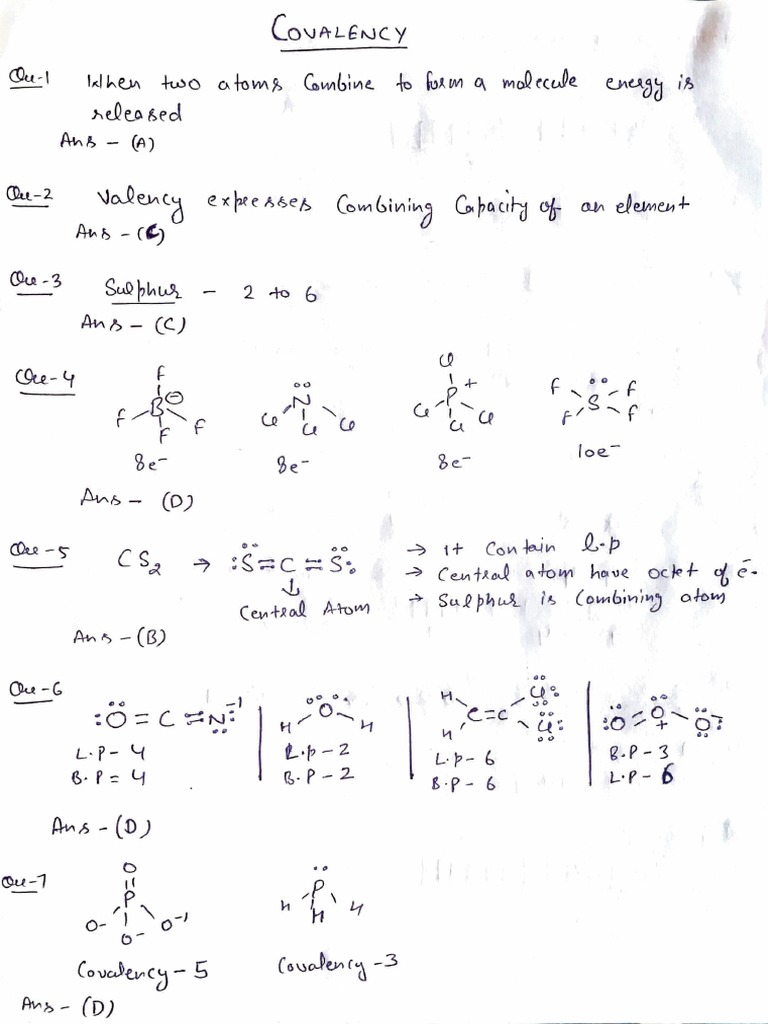 COVALENCY
Que-1 When two atoms Combine to form a molecule energy is
released
Ans - (A)
Que-2 Valency expresses Combining Capacity of an element
Ans - (C)
Que-3 Sulphur - 2 to 6
Ans - (C)
Que-4
F B⊖ F F F
N̈ Cl Cl Cl
Cl P+ Cl Cl Cl
F F S̈ F F
8e⁻ 8e⁻ 8e⁻ 10e⁻
Ans - (D)
Que-5 CS₂ → :S̈=C=S̈: → It Contain l.p
→ Central atom have octet of ē.
Central Atom → Sulphur is Combining atom
Ans - (B)
Que-6
:Ö=C=N̈:⁻¹ | H O H | H H C=C Cl Cl | :Ö=Ö+-Ö:
L.P - 4 L.p - 2 L.p - 6 B.P - 3
B.P = 4 B.P - 2 B.P - 6 L.P - 6
Ans - (D)
Que-7
O=P O- O- O-¹
P̈ H H H
Covalency - 5 Covalency - 3
Ans - (D)